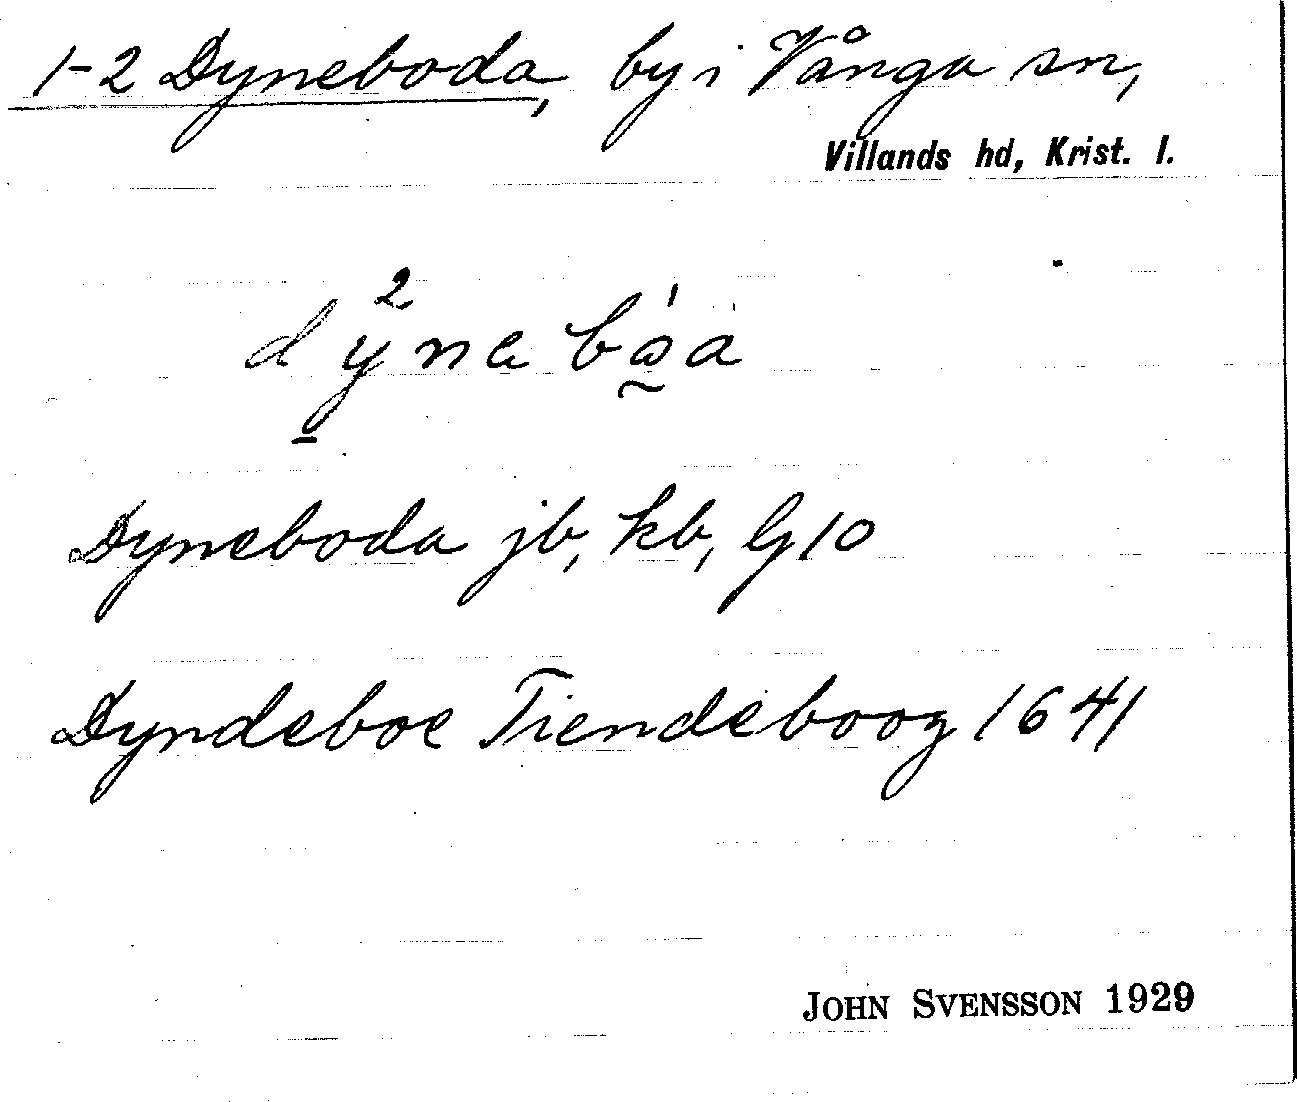 1-2 Dyneboda, by i Vånga sn,
Villands hd, Krist. l.
Dyneboda jb, kb, Gg 10
Dyndeboe Tiendeboog 1641
JOHN SVENSSON 1929